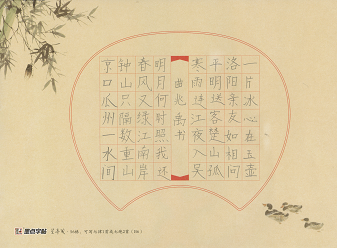 京口瓜州一水间
钟山只隔数重山
春风又绿江南岸
明月何时照我还
寒雨连江夜入吴
平明送客楚山孤
洛阳亲友如相问
一片冰心在玉壶
墨点字帖